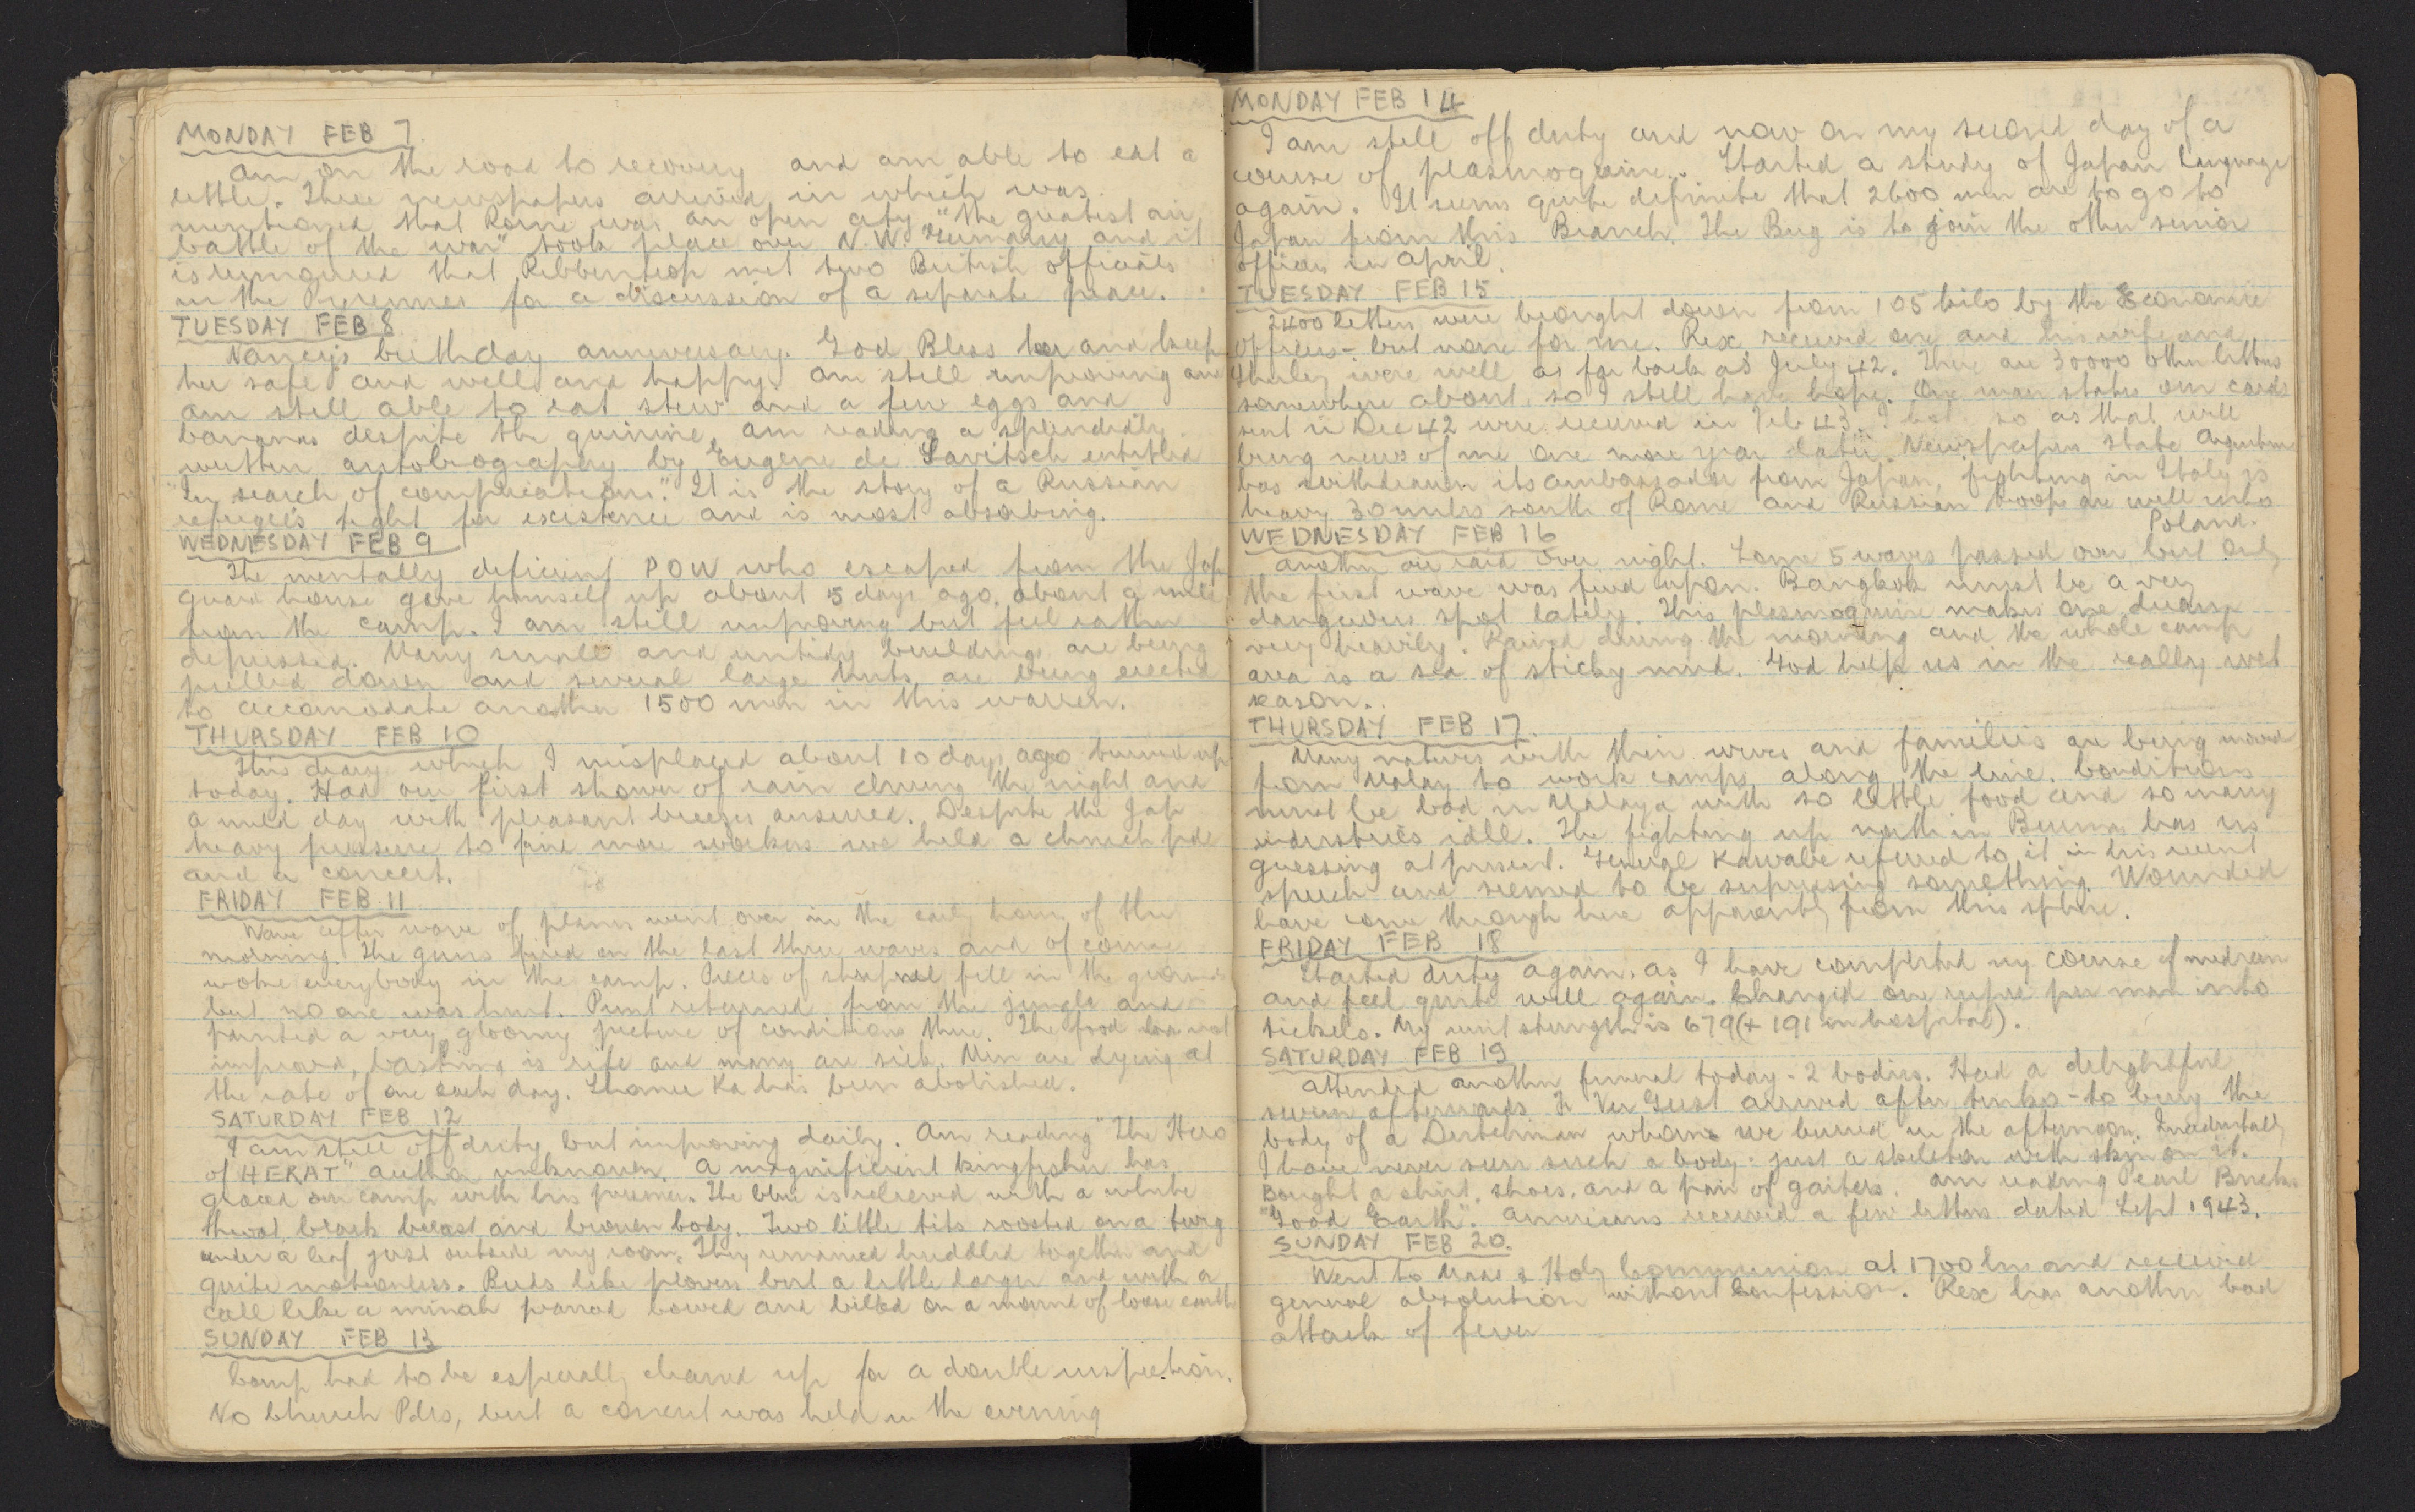 MONDAY FEB 7.
Am on the road to recovery and am able to eat a
little. Three newspapers arrived in which was
mentioned that Rome was an open city, "the greatest air
battle of the war" took place over N.W. Germany and it
is rumoured that Ribbentrop met two British officials
in the Pyrennes for a discussion of a separate peace.
TUESDAY FEB 8
Nancy's birthday anniversary. God Bless her and keep
her safe and well and happy. Am still improving and
am still able to eat stew and a few eggs and
bananas despite the quinine. Am reading a splendidly
written autobiography by Eugene de Savitsch entitled
"In search of complications." It is the story of a Russian
refugee's fight for existence and is most absorbing.
WEDNESDAY FEB 9
The mentally deficient POW who escaped from the Jap
guard house gave himself up about 5 days ago, about a mile
from the camp. I am still improving but feel rather
depressed. Many small and untidy buildings are being
pulled down and several large huts are being erected
to accomodate another 1500 men in this warren.
THURSDAY FEB 10
This diary which I misplaced about 10 days ago turned up
today. Had our first shower of rain during the night and
a mild day with pleasant breezes ensured. Despite the Jap
heavy pressure to find more workers we held a church pde
and a concert.
FRIDAY FEB 11
Wave after wave of planes went over in the early hours of the
morning. The guns fired on the last three waves and of course
woke everybody in the camp. Pieces of shrapnel fell in the grounds
but no one was hurt. Punt returned from the jungle and
painted a very gloomy picture of conditions there. The food has not
improved, bashing is rife and many are sick. Men are dying at
the rate of one each day. Ka has been abolished.
SATURDAY FEB 12
I am still off duty but improving daily. Am reading "The Hero
of HERAT" author unknown. A magnificient kingfisher has
graced our camp with his presence. The blue is relieved with a white
throat, black breast and brown body. Two little tits roosted on a twig
under a leaf just outside my room. They remained huddled together and
quite motionless. Birds like plovers but a little larger and with a
call like a minah pranced bowed and billed on a mound of loose earth
SUNDAY FEB 13
Camp had to be especially cleaned up for a double inspection.
No Church Pdes, but a concert was held in the evening
MONDAY FEB 14
I am still off duty and now on my second day of a
course of plasmoquine. Started a study of Japan language
again. It seems quite definite that 2600 men are to go to
Japan from this Branch. The Brig is to join the other senior
officers in April.
TUESDAY FEB 15
2400 letters were brought down from 105 kilo by the Economic
Officers - but none for me. Rex received one and his wife and
Shirley were well as far back as July 42. There are 30000 other letters
somewhere about, so I still have hope. One man states our cards
sent in Dec 42 were received in Feb 43. I hope so as that will
bring news of me one more year later. Newspapers state Argentine
has withdrawn its ambassador from Japan, fighting in Italy is
heavy 30 miles south of Rome and Russian troops are well into
Poland.
WEDNESDAY FEB 16
Another air raid over night. Some 5 waves passed over but only
the first wave was fired upon. Bangkok must be a very
dangerous spot lately. This plasmoquine makes one dream
very heavily. Rained during the morning and the whole camp
area is a sea of sticky mud. God help us in the really wet
season.
THURSDAY FEB 17.
Many natives with their wives and families are being moved
from Malay to work camps along the line. Conditions
must be bad in Malaya with so little food and so many
industries idle. The fighting up north in Burma has us
guessing at present. General Kawabe referred to it in his recent
speech and seemed to be supressing something. Wounded
have come through here apparently from this sphere.
FRIDAY FEB 18
Started duty again, as I have completed my course of medicine
and feel quite well again. Changed one rupee per man into
tickels. My unit strength is 679 (+ 191 in hospital).
SATURDAY FEB 19
Attended another funeral today - 2 bodies. Had a delightful
swim afterwards. arrived after tenko - to bury the
body of a Dutchman whom we buried in the afternoon. Incidentally
I have never seen such a body - just a skeleton with skin on it.
Bought a shirt, shoes, and a pair of gaiters. Am reading Pearl Bucks
"Good Earth". Americans received a few letters dated Sept 1943.
SUNDAY FEB 20.
Went to Mass & Holy Communion at 1700 hrs and received
general absolution without Confession. Rex has another bad
attack of fever